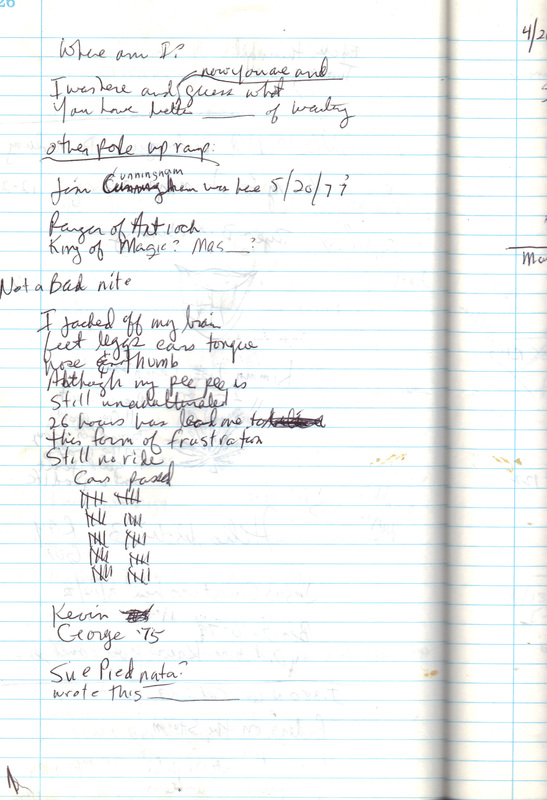 26
4/2
Where am I?
now you are and
I was here and guess what
You have hella ____ of waiting
other pole up ramp:
Cunningham
Jim was here 5/20/77
Ranger of Antioch
King of Magic? Mas__?
Not a Bad nite
I jacked off my brain
feet leggs ears tongue
nose & thumb
Although my pee pee is
Still unadulturated
26 hours has lead me to
this form of frustration
Still no ride
Cars passed
Kevin
George '75
Sue Piednata?
wrote this ____